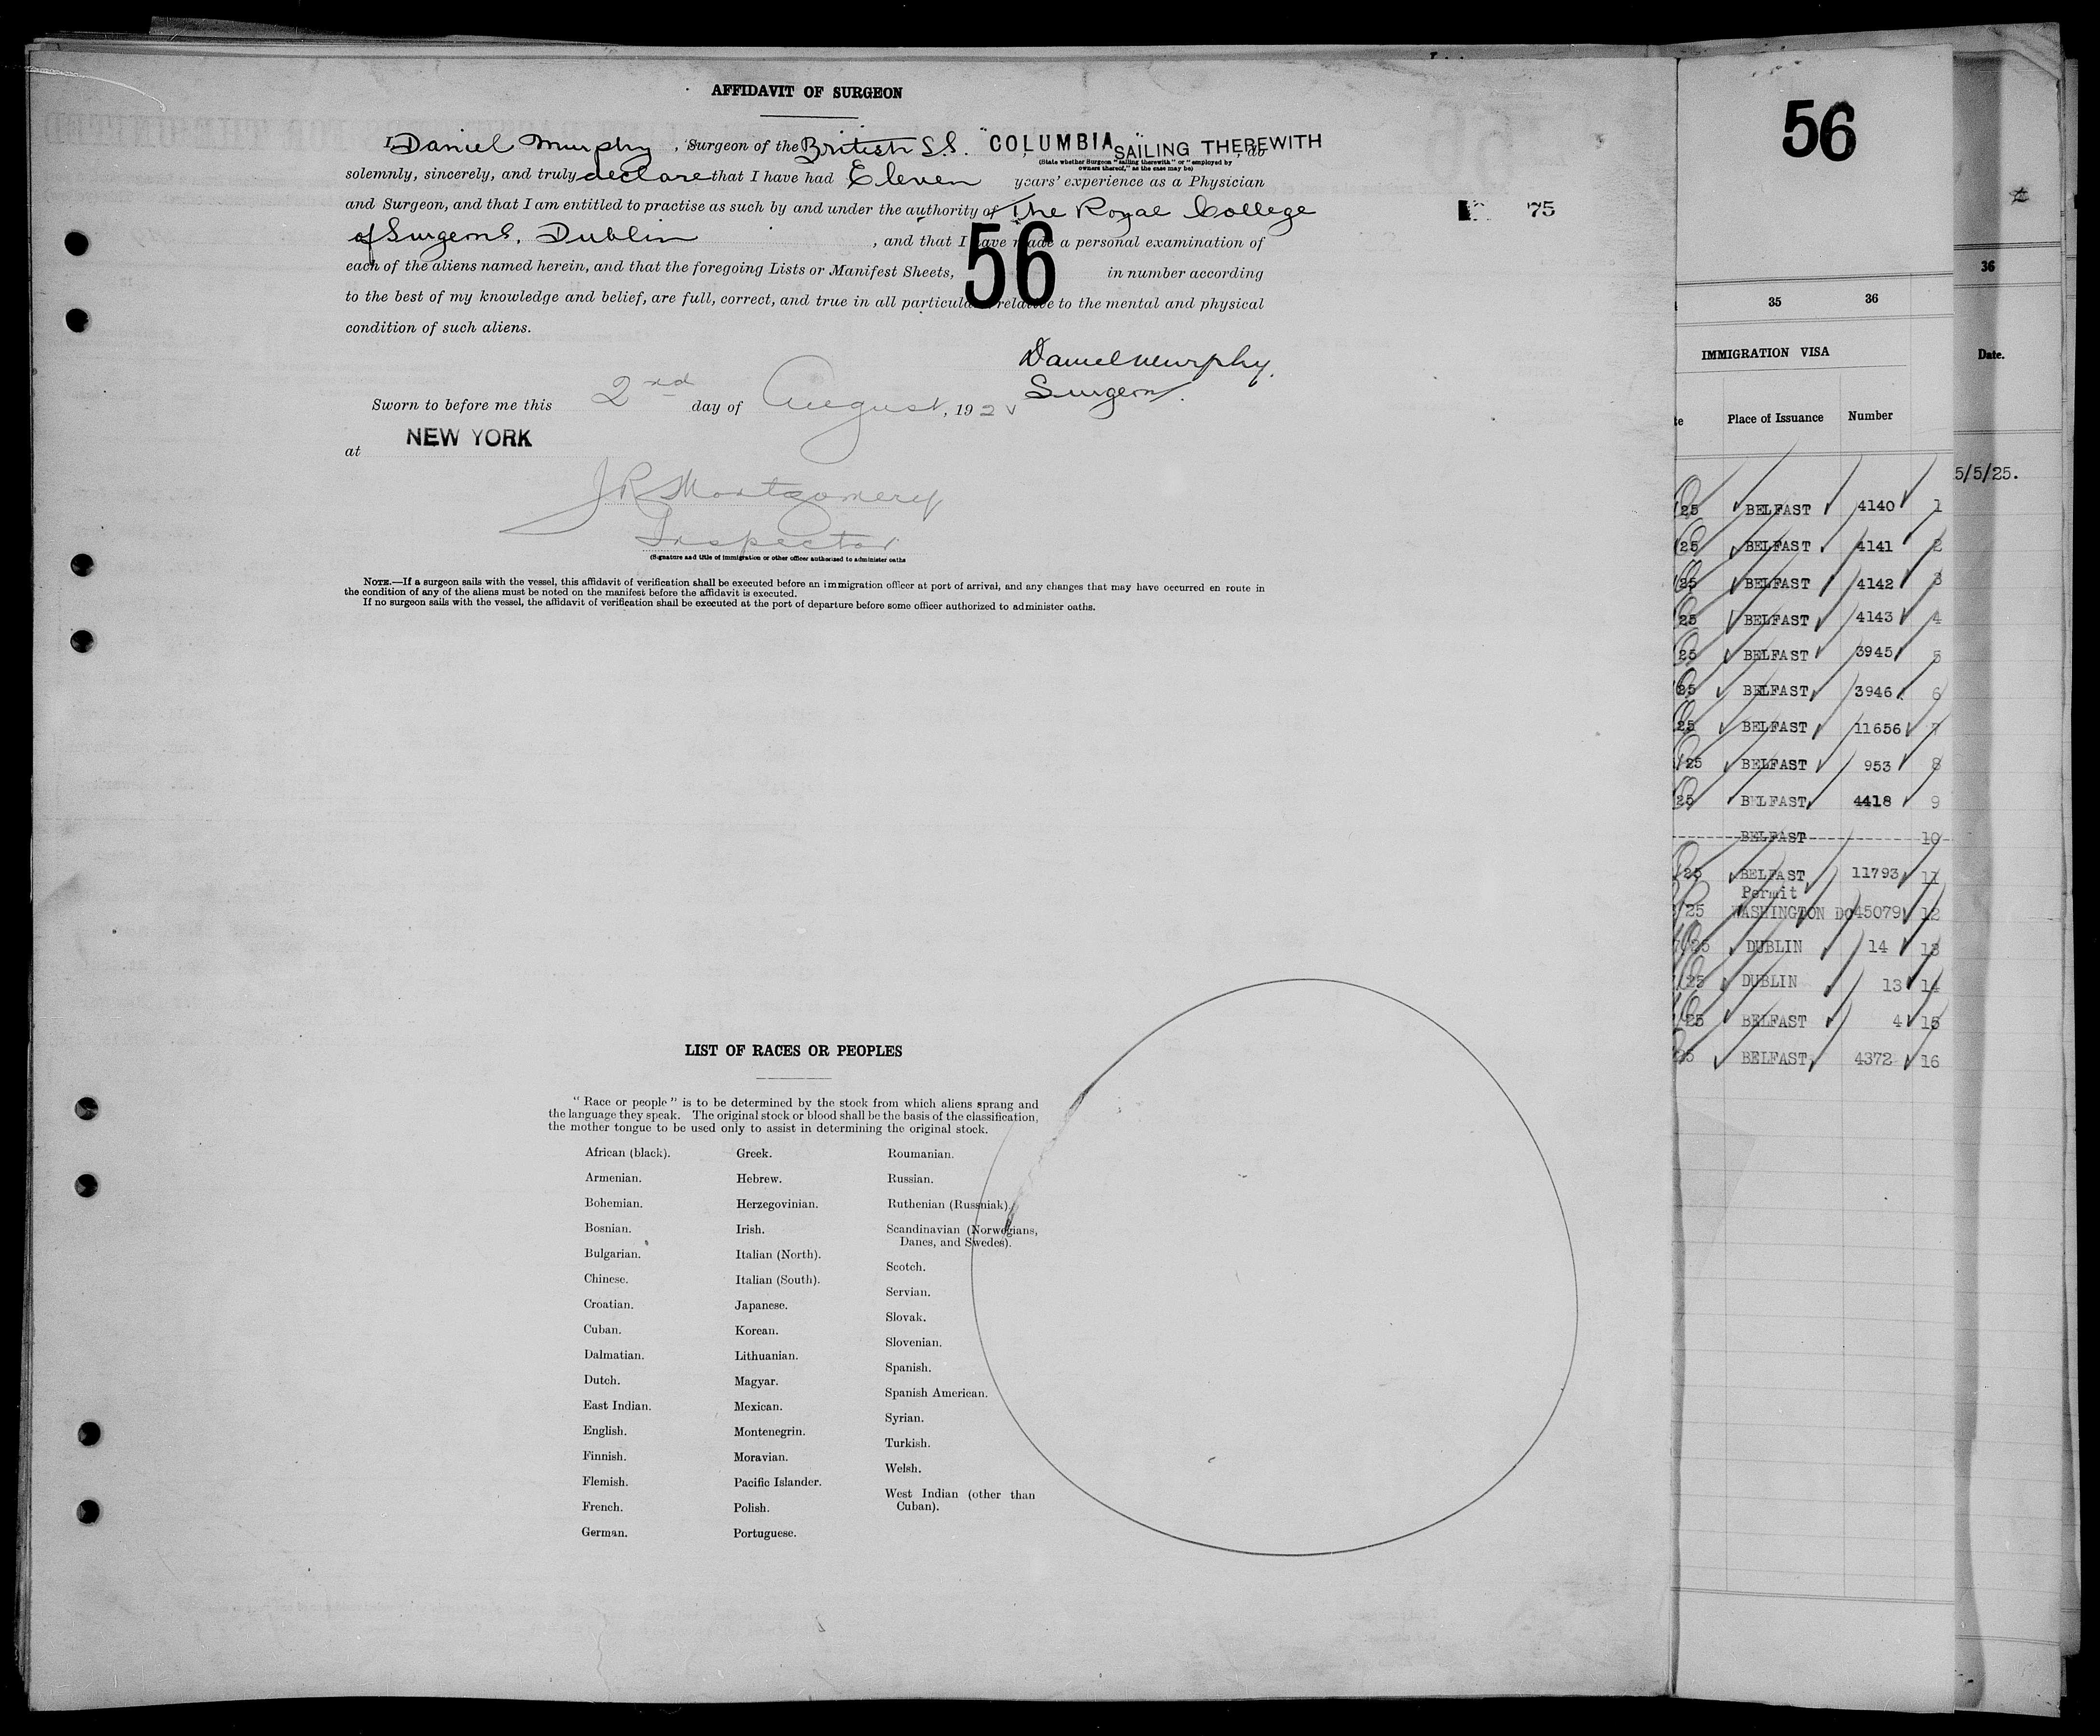 AFFIDAVIT OF SURGEON
I Daniel Murphy, Surgeon of the British S.S. "COLUMBIA SAILING THEREWITH, do
(State whether Surgeon "sailing therewith" or "employed by
owners thereof," as the case may be)
solemnly, sincerely, and truly declare that I have had Eleven years' experience as a Physician
and Surgeon, and that I am entitled to practise as such by and under the authority of The Royal College
of Surgeons, Dublin, and that I have made a personal examination of
each of the aliens named herein, and that the foregoing Lists or Manifest Sheets, 56 in number according
to the best of my knowledge and belief, are full, correct, and true in all particulars relative to the mental and physical
condition of such aliens.
Daniel Murphy.
Surgeon.
Sworn to before me this 2nd day of August, 192
at NEW YORK
J R Montgomery
Inspector
(Signature and title of immigration or other officer authorized to administer oaths
NOTE.—If a surgeon sails with the vessel, this affidavit of verification shall be executed before an immigration officer at port of arrival, and any changes that may have occurred en route in
the condition of any of the aliens must be noted on the manifest before the affidavit is executed.
If no surgeon sails with the vessel, the affidavit of verification shall be executed at the port of departure before some officer authorized to administer oaths.
75
LIST OF RACES OR PEOPLES
"Race or people" is to be determined by the stock from which aliens sprang and
the language they speak. The original stock or blood shall be the basis of the classification,
the mother tongue to be used only to assist in determining the original stock.
African (black).
Armenian.
Bohemian.
Bosnian.
Bulgarian.
Chinese.
Croatian.
Cuban.
Dalmatian.
Dutch.
East Indian.
English.
Finnish.
Flemish.
French.
German.
Greek.
Hebrew.
Herzegovinian.
Irish.
Italian (North).
Italian (South).
Japanese.
Korean.
Lithuanian.
Magyar.
Mexican.
Montenegrin.
Moravian.
Pacific Islander.
Polish.
Portuguese.
Roumanian.
Russian.
Ruthenian (Russniak).
Scandinavian (Norwegians,
Danes, and Swedes).
Scotch.
Servian.
Slovak.
Slovenian.
Spanish.
Spanish American.
Syrian.
Turkish.
Welsh.
West Indian (other than
Cuban).
56
35 36
IMMIGRATION VISA
te Place of Issuance Number
25 BELFAST 4140 1
25 BELFAST 4141 2
25 BELFAST 4142 3
25 BELFAST 4143 4
25 BELFAST 3945 5
25 BELFAST 3946 6
25 BELFAST 11656 7
/25 BELFAST 953 8
25 BELFAST 4418 9
BELFAST 10
25 BELFAST 11793 11
Permit
/25 WASHINGTON DC 45079 12
/25 DUBLIN 14 13
/25 DUBLIN 13 14
/25 BELFAST 4 15
25 BELFAST 4372 16
36
Date.
5/5/25.